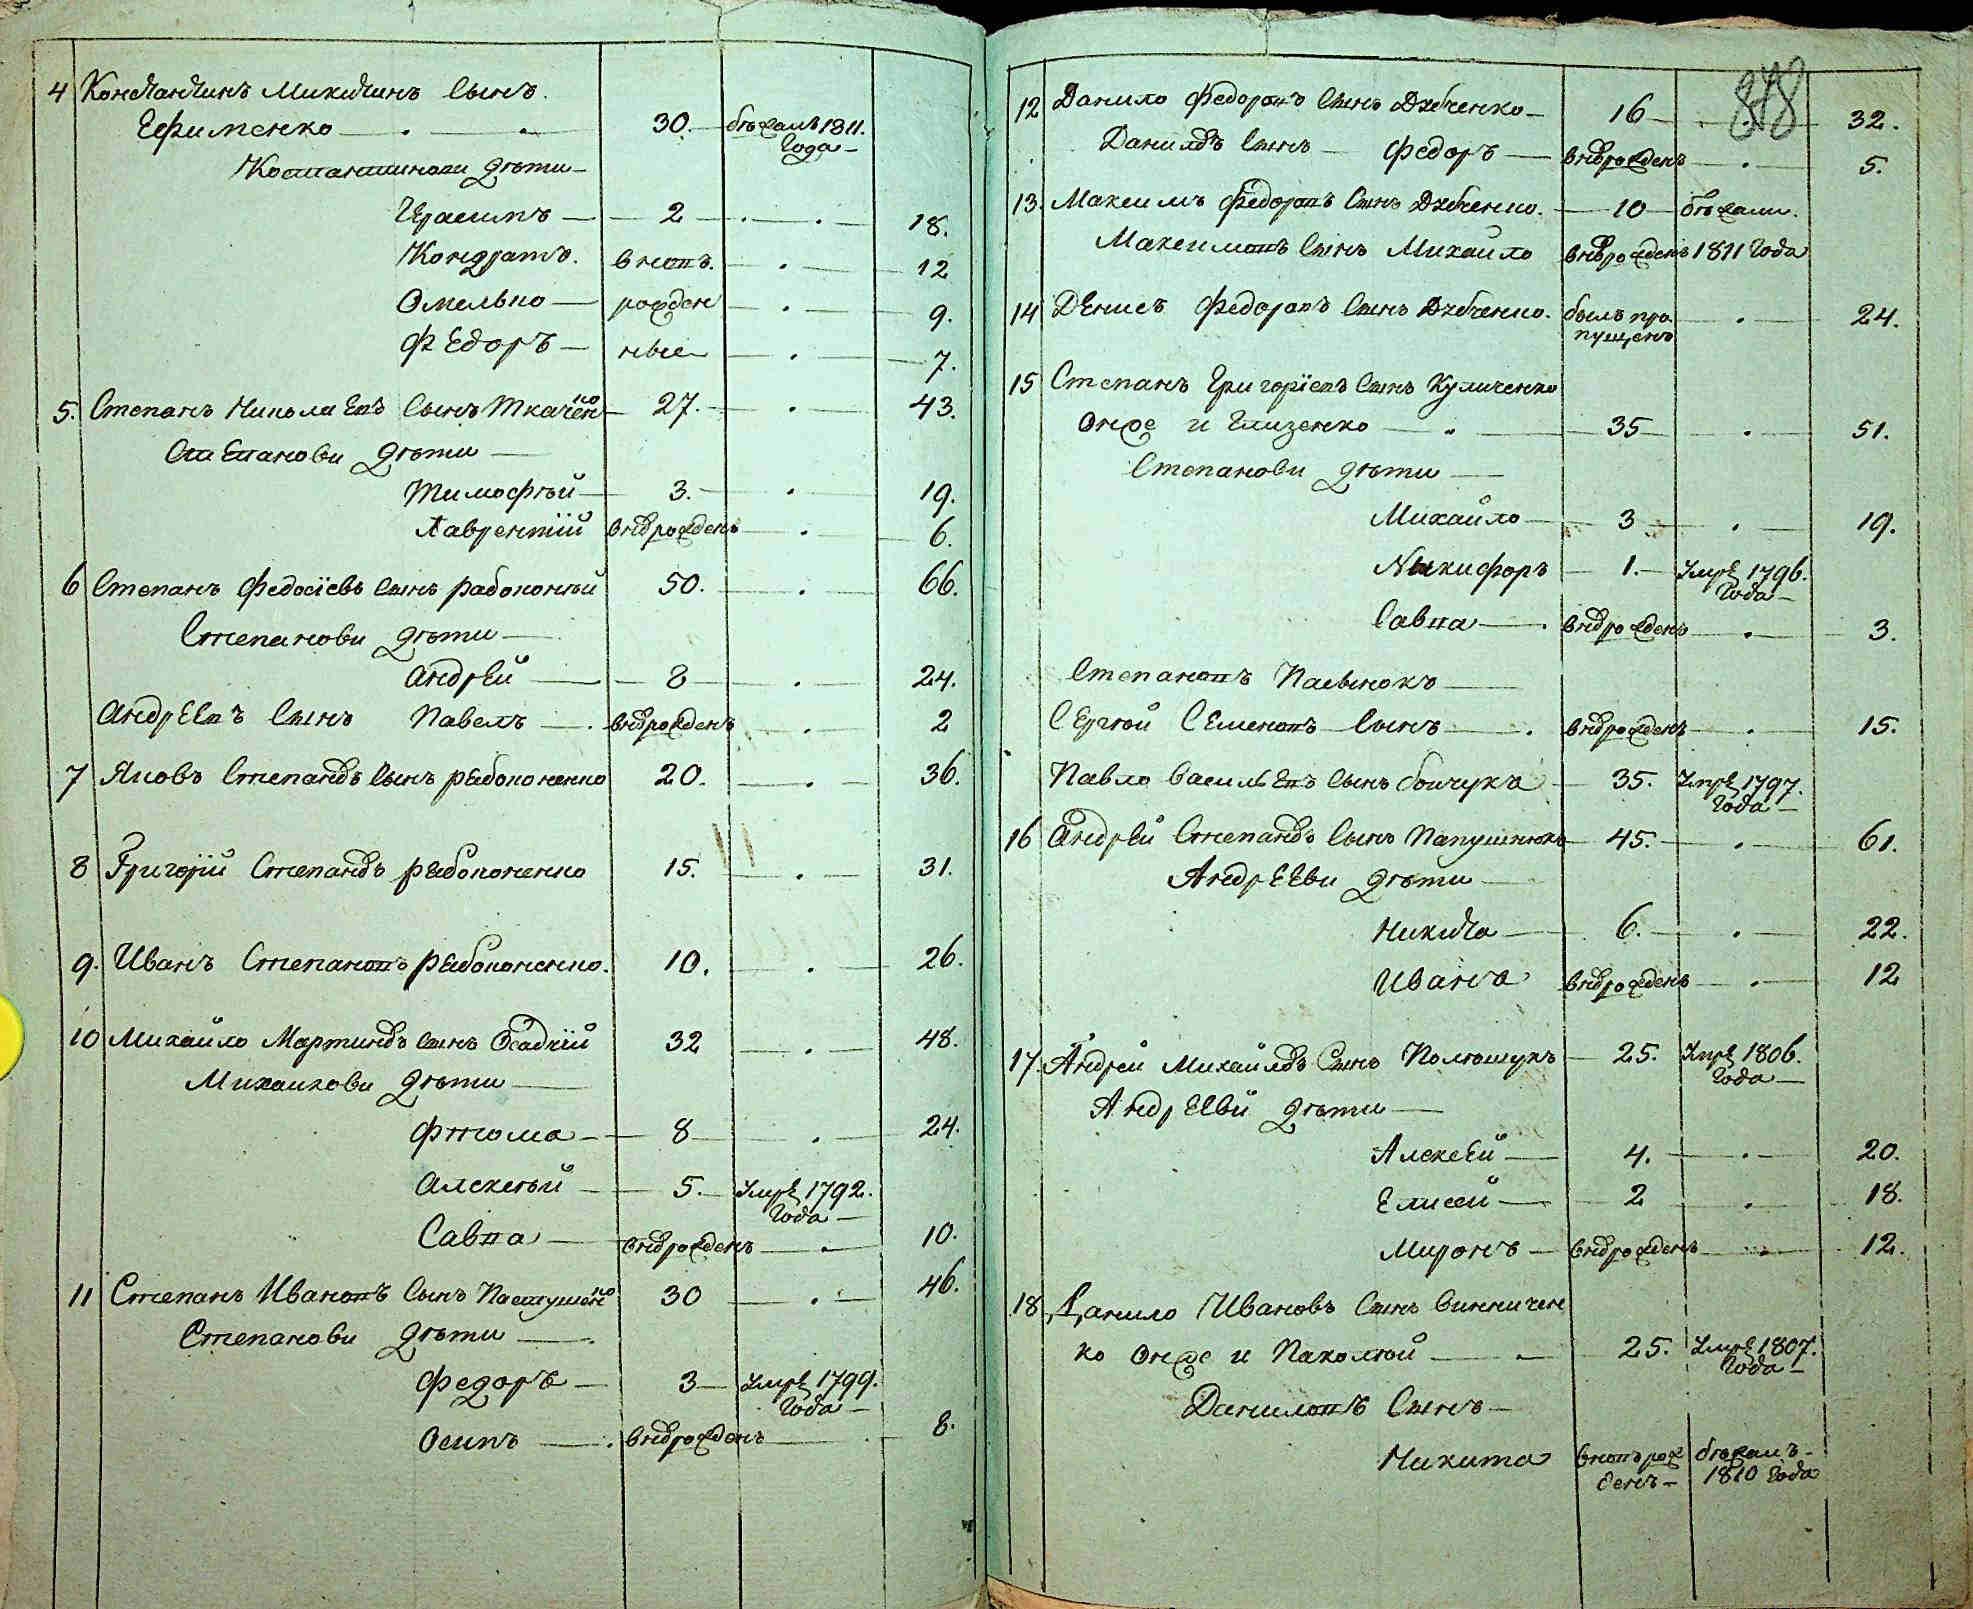 4 Константинъ Микитинъ Сынъ
Ефименко 30. бѣжалъ 1811.
Года
Костантинови дѣти
Герасимъ 2 18.
Кондратъ. вновъ. 12
Омелько рожден 9.
Федоръ ные 7.
5. Степанъ Николаевъ Сынъ Ткаченко 27. 43.
Степанови дѣти
Тимофѣй 3. 19.
Лаврентій вноврожденъ 6.
6 Степанъ Федосіевъ Сынъ Рабоконѣй 50. 66.
Степанови дѣти
Андрей 8 24.
Андреевъ Сынъ Павелъ вноврожденъ 2
7 Яковъ Степановъ Сынъ Рабоконенко 20. 36.
8 Григорій Степановъ Рабоконенко 15. 31.
9. Иванъ Степановъ Рабоконенко. 10. 26.
10 Михайло Мартиновъ Сынъ Осадчій 32 48.
Михайлови дѣти
Фтома 8 24.
Алексѣй 5. Умре 1792.
Года
Савва вноврожденъ 10.
11 Степанъ Ивановъ Сынъ Пастушенко 30 46.
Степанови дѣти
Федоръ 3 Умре 1799.
Года
Осипъ вноврожденъ 8.
878
12 Данило Федоровъ Сынъ Дядченко 16 32.
Даниловъ Сынъ Федоръ вноврожденъ 5.
13. Максимъ Федоровъ Сынъ Дядченко. 10 бѣжали.
Максимовъ Сынъ Михайло вноврожденъ 1811 Года
14 Денисъ Федоровъ Сынъ Дядченко. былъ про 24.
пущенъ
15 Степанъ Григоріевъ Сынъ Куличенко
Онже и Глизенко 35 51.
Степанови дѣти
Михайло 3 19.
Никифоръ 1. Умре 1796.
Года
Савва вноврожденъ 3.
Степановъ Пасынокъ
Сергѣй Семеновъ Сынъ вновроженъ 15.
Павло Васильевъ Сынъ Бойчукъ 35. Умре 1797.
Года
16 Андрей Степановъ Сынъ Папушнюкъ 45. 61.
Андрееви дѣти
Никита 6. 22.
Иванъ вновроженъ 12
17. Андрей Михайловъ Сынъ Полющукъ 25. Умре 1806.
Года
Андрееви дѣти
Алексей 4. 20.
Елисей 2 18.
Миронъ вновроженъ 12.
18 Данило Ивановъ Сынъ Винничен
ко Онже и Пахолюй 25. Умре 1807.
Года
Даниловъ Сынъ
Никита вновърож бѣжалъ
денъ 1810 Года